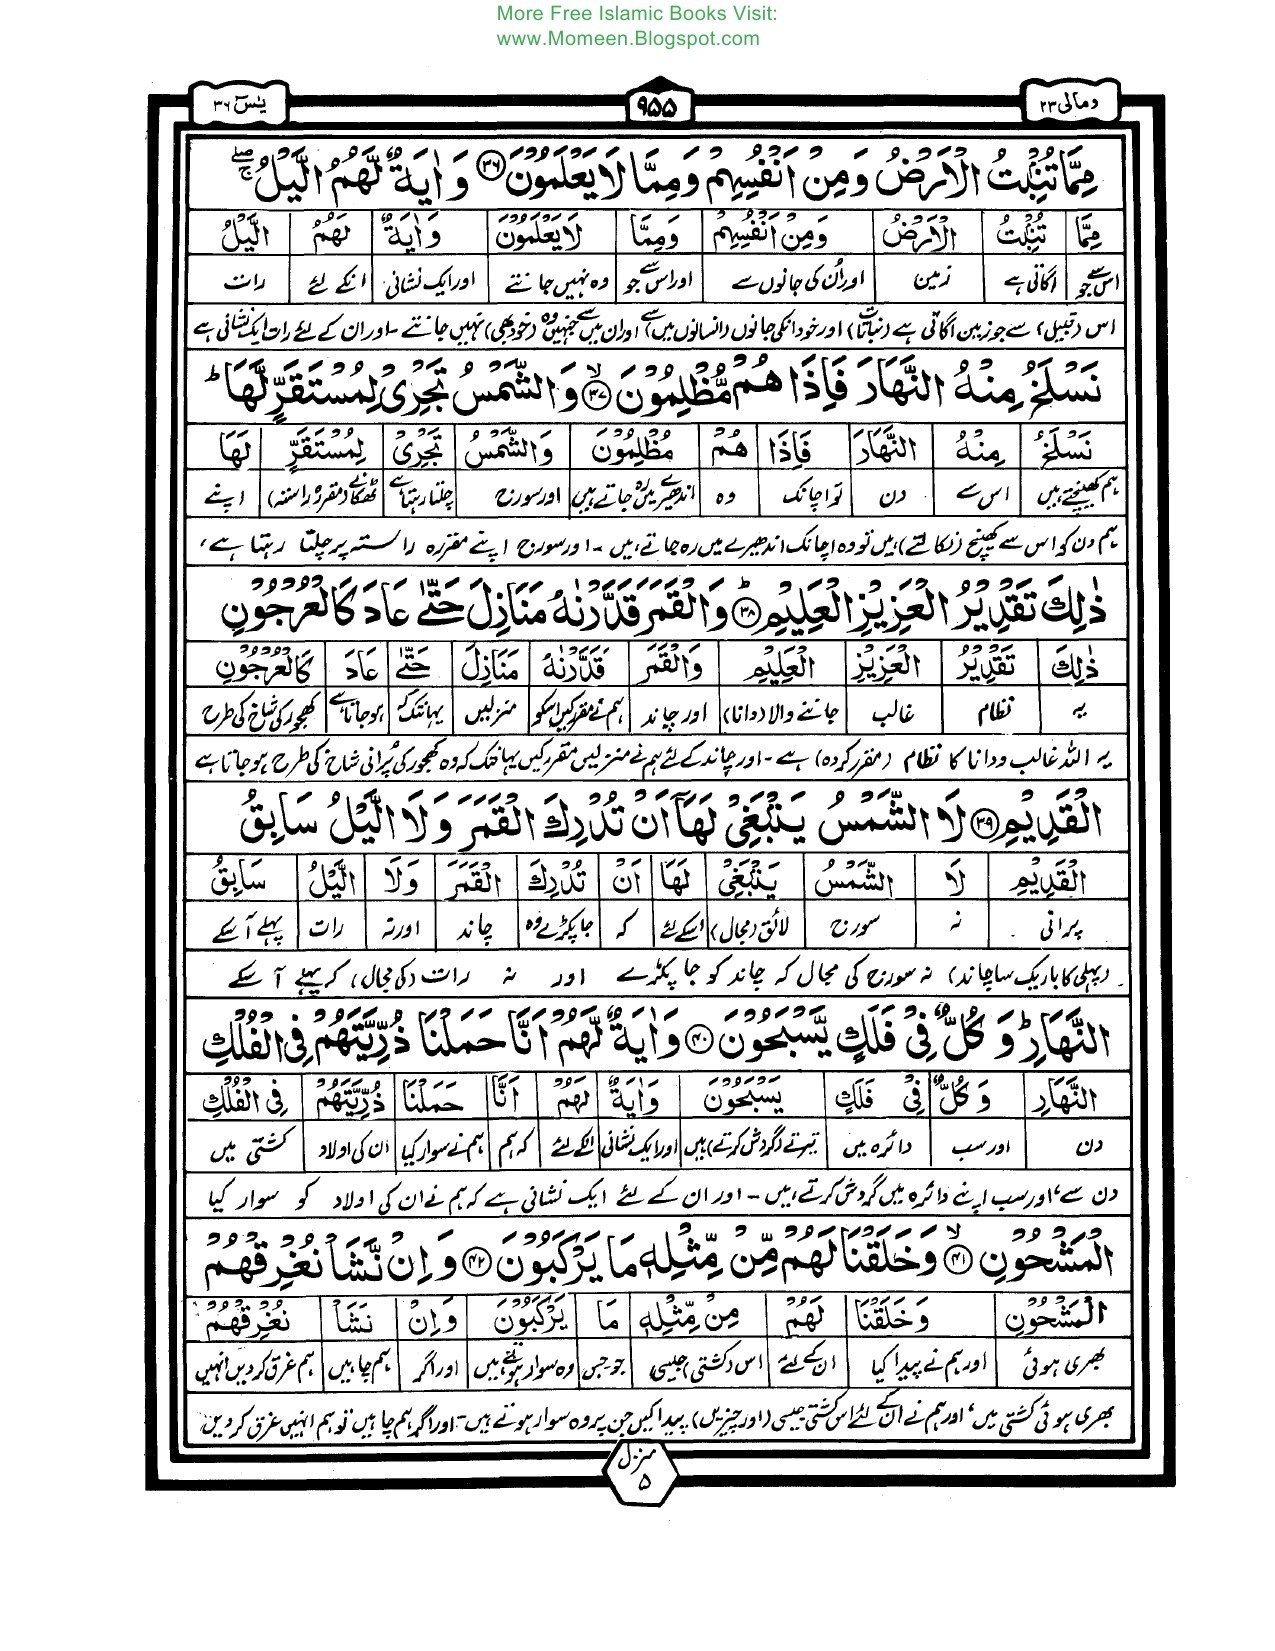 More Free Islamic Books Visit:
www.Momeen.Blogspot.com
ومالی ۲۳
۹۵۵
یٰسٓ ۳۶
مِمَّا تُنْۢبِتُ الْاَرْضُ وَ مِنْ اَنْفُسِهِمْ وَ مِمَّا لَا يَعْلَمُوْنَ ۳۶ وَ اٰيَةٌ لَّهُمُ الَّيْلُ ۖۚ
مِمَّا تُنْۢبِتُ الْاَرْضُ وَمِنْ اَنْفُسِهِمْ وَمِمَّا لَا يَعْلَمُوْنَ وَاٰيَةٌ لَهُمُ الَّيْلُ
اس سے جو اگاتی ہے زمین اور اُن کی جانوں سے اور اس سے جو وہ نہیں جانتے اور ایک نشانی انکے لئے رات
اس (قبیل) سے جو زمین اگاتی ہے (نباتات) اور خود انکی جانوں (انسانوں میں) سے اور ان میں سے جنہیں وہ (خود بھی) نہیں جانتے - اور ان کے لئے رات ایک نشانی ہے
نَسْلَخُ مِنْهُ النَّهَارَ فَاِذَا هُمْ مُّظْلِمُوْنَ ۳۷ۙ وَالشَّمْسُ تَجْرِيْ لِمُسْتَقَرٍّ لَّهَا ؕ
نَسْلَخُ مِنْهُ النَّهَارَ فَاِذَا هُمْ مُظْلِمُوْنَ وَالشَّمْسُ تَجْرِيْ لِمُسْتَقَرٍّ لَهَا
ہم کھینچتے ہیں اس سے دن تو اچانک وہ اندھیرے میں رہ جاتے ہیں اور سورج چلتا رہتا ہے ٹھکانے (مقررہ راستہ) اپنے
ہم دن کو اس سے کھینچ (نکالتے) ہیں تو وہ اچانک اندھیرے میں رہ جاتے ہیں - اور سورج اپنے مقررہ راستہ پر چلتا رہتا ہے،
ذٰلِكَ تَقْدِيْرُ الْعَزِيْزِ الْعَلِيْمِ ۳۸ؕ وَالْقَمَرَ قَدَّرْنٰهُ مَنَازِلَ حَتّٰى عَادَ كَالْعُرْجُوْنِ
ذٰلِكَ تَقْدِيْرُ الْعَزِيْزِ الْعَلِيْمِ وَالْقَمَرَ قَدَّرْنٰهُ مَنَازِلَ حَتّٰى عَادَ كَالْعُرْجُوْنِ
یہ نظام غالب جاننے والا (دانا) اور چاند ہم نے مقرر کیں اسکو منزلیں یہانتک کہ ہو جاتا ہے کھجور کی شاخ کی طرح
یہ اللہ غالب و دانا کا نظام (مقرر کردہ) ہے - اور چاند کے لئے ہم نے منزلیں مقرر کیں یہانتک کہ وہ کھجور کی پُرانی شاخ کی طرح ہو جاتا ہے
الْقَدِيْمِ ۳۹ لَا الشَّمْسُ يَنْۢبَغِيْ لَهَاۤ اَنْ تُدْرِكَ الْقَمَرَ وَلَا الَّيْلُ سَابِقُ
الْقَدِيْمِ لَا الشَّمْسُ يَنْۢبَغِيْ لَهَا اَنْ تُدْرِكَ الْقَمَرَ وَلَا الَّيْلُ سَابِقُ
پرانی نہ سورج لائق (مجال) اسکے لئے کہ جا پکڑے وہ چاند اور نہ رات پہلے آ سکے
(پہلی کا باریک سا چاند) نہ سورج کی مجال کہ چاند کو جا پکڑے اور نہ رات (کی مجال) کہ پہلے آ سکے
النَّهَارِ ؕ وَ كُلٌّ فِيْ فَلَكٍ يَّسْبَحُوْنَ ۴۰ وَاٰيَةٌ لَّهُمْ اَنَّا حَمَلْنَا ذُرِّيَّتَهُمْ فِي الْفُلْكِ
النَّهَارِ وَكُلٌّ فِيْ فَلَكٍ يَسْبَحُوْنَ وَاٰيَةٌ لَهُمْ اَنَّا حَمَلْنَا ذُرِّيَّتَهُمْ فِي الْفُلْكِ
دن اور سب دائرہ میں تیرتے (گردش کرتے) ہیں اور ایک نشانی انکے لئے کہ ہم ہم نے سوار کیا ان کی اولاد کشتی میں
دن سے، اور سب اپنے دائرہ میں گردش کرتے ہیں - اور ان کے لئے ایک نشانی ہے کہ ہم نے ان کی اولاد کو سوار کیا
الْمَشْحُوْنِ ۴۱ۙ وَخَلَقْنَا لَهُمْ مِّنْ مِّثْلِهٖ مَا يَرْكَبُوْنَ ۴۲ وَاِنْ نَّشَاْ نُغْرِقْهُمْ
الْمَشْحُوْنِ وَخَلَقْنَا لَهُمْ مِنْ مِّثْلِهٖ مَا يَرْكَبُوْنَ وَاِنْ نَشَاْ نُغْرِقْهُمْ
بھری ہوئی اور ہم نے پیدا کیا ان کے لئے اس (کشتی) جیسی جو جس وہ سوار ہوتے ہیں اور اگر ہم چاہیں ہم غرق کر دیں انہیں
بھری ہوئی کشتی میں، اور ہم نے ان کے لئے اس کشتی جیسی (اور چیزیں) پیدا کیں جن پر وہ سوار ہوتے ہیں - اور اگر ہم چاہیں تو ہم انہیں غرق کر دیں
منزل
۵